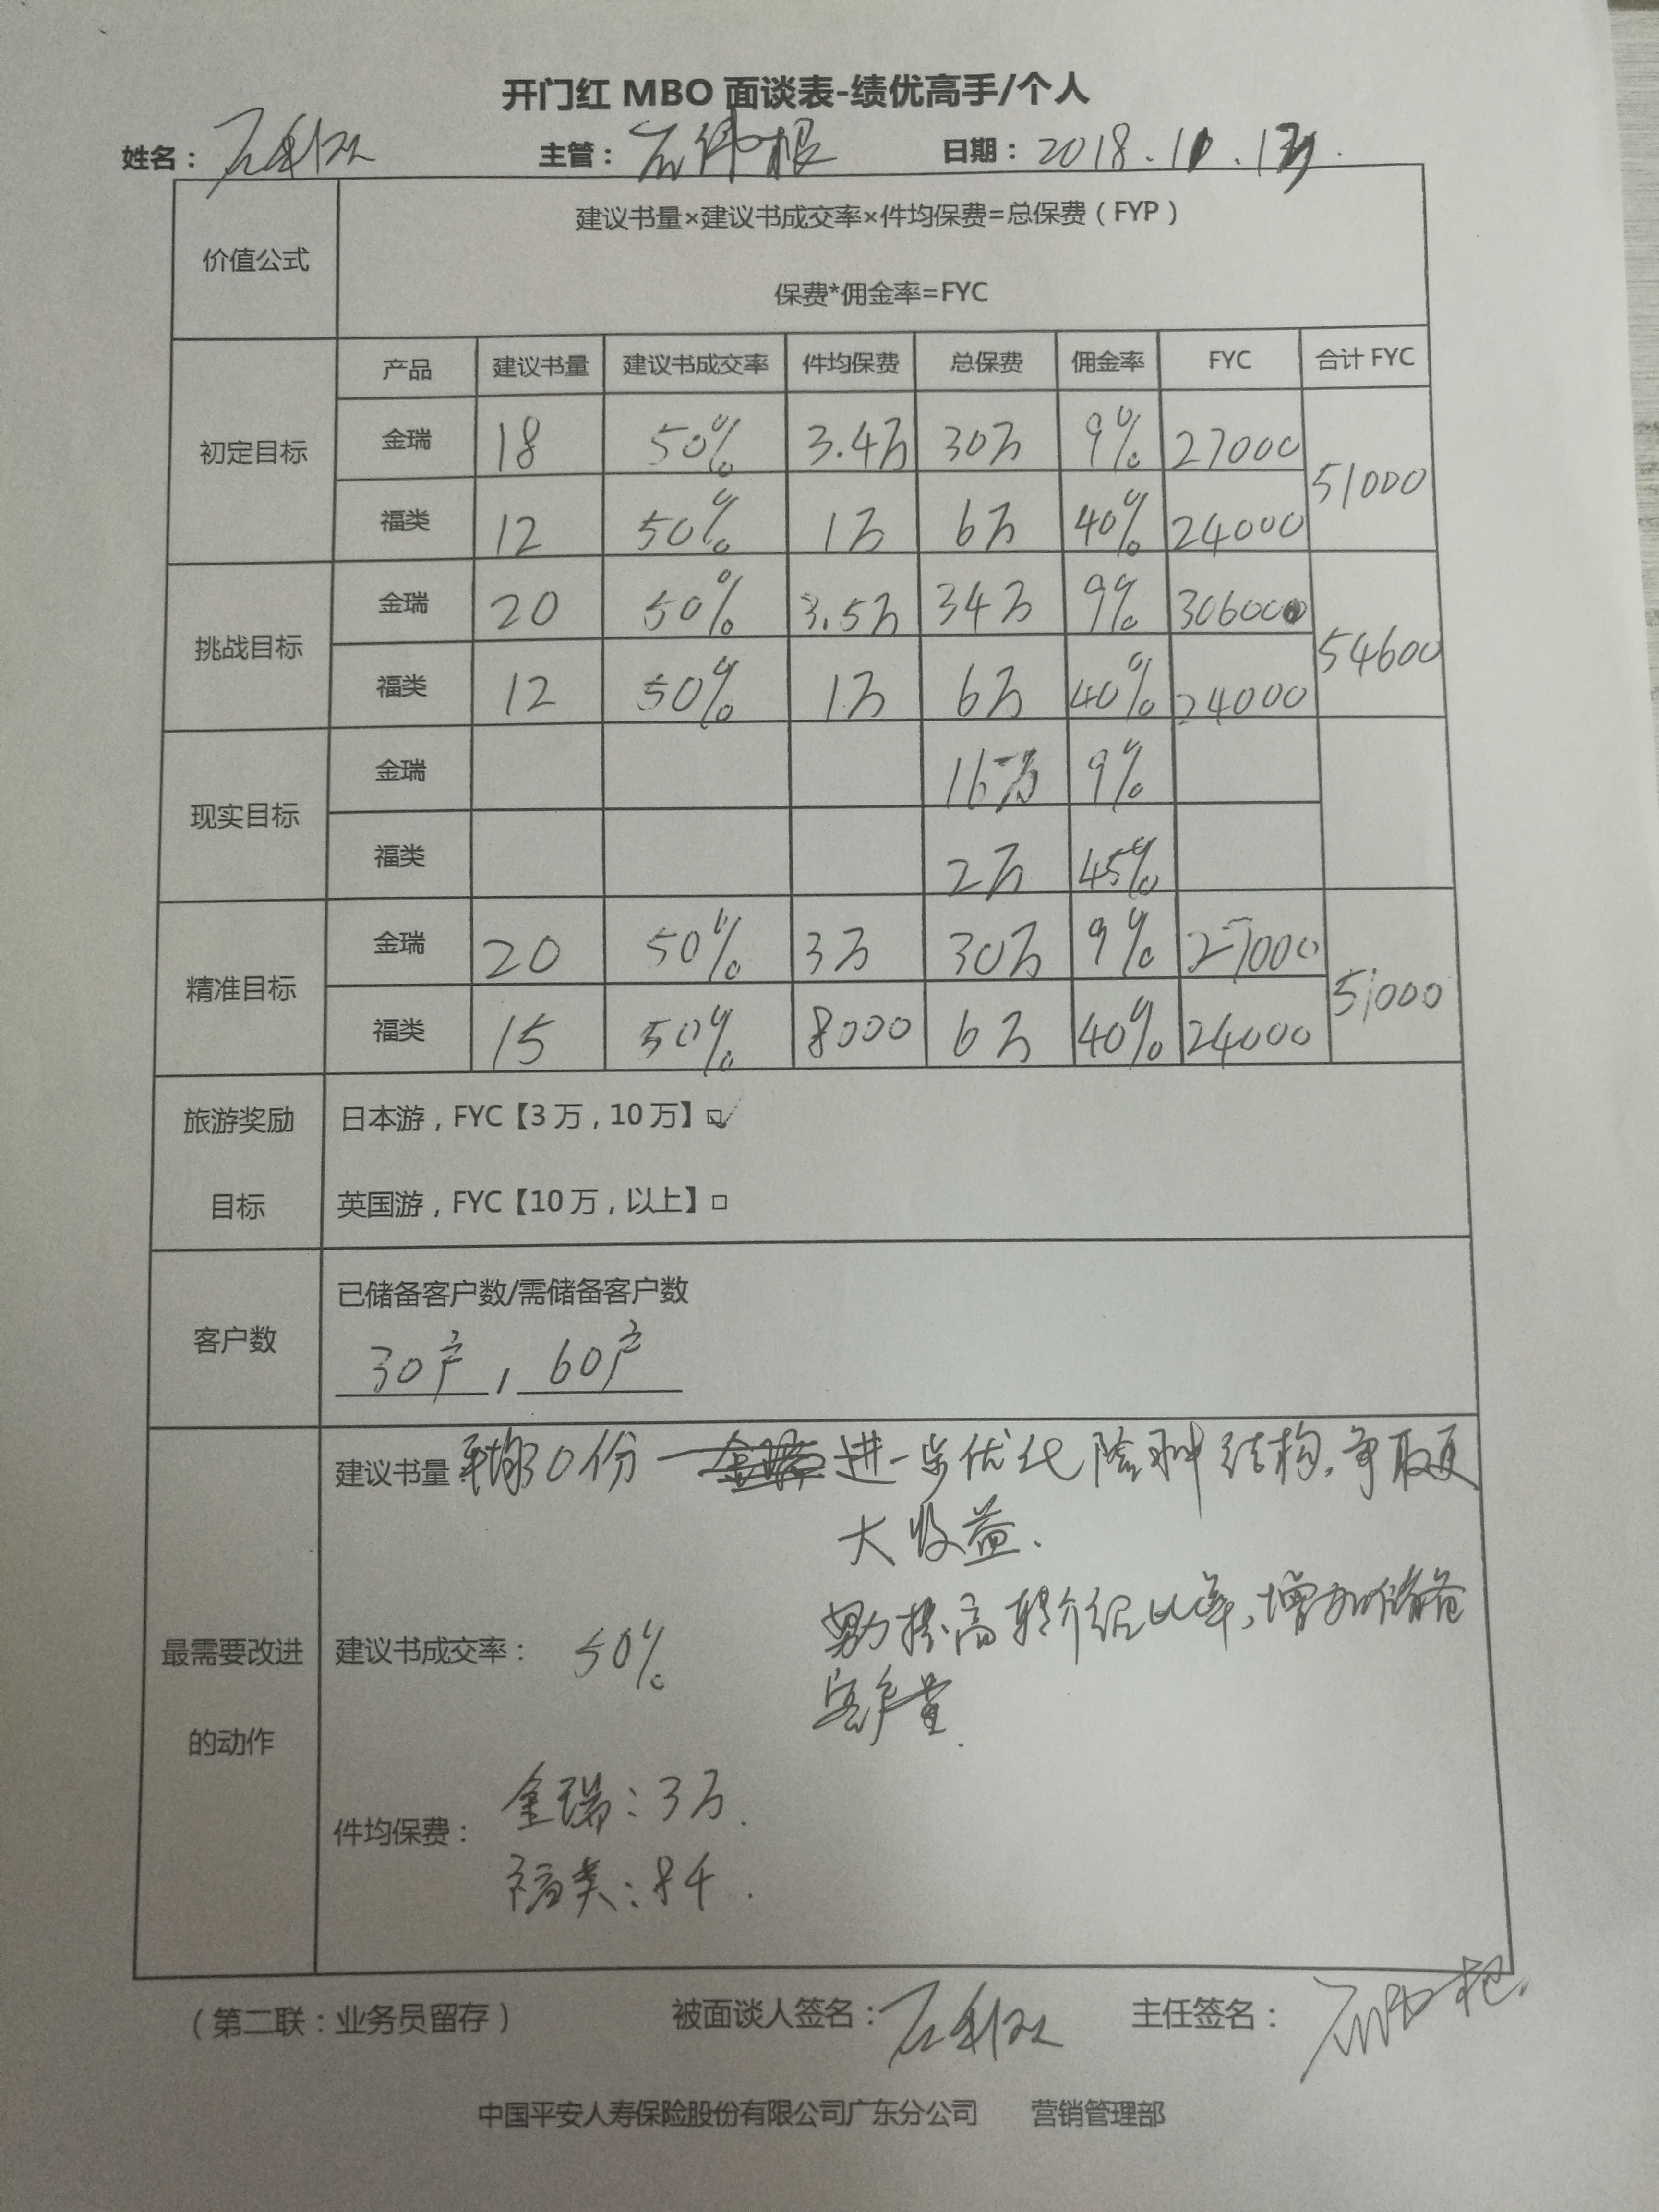 开门红 MBO 面谈表-绩优高手/个人
姓名： 主管： 日期：2018.
价值公式
建议书量×建议书成交率×件均保费=总保费（FYP）
保费*佣金率=FYC
产品 建议书量 建议书成交率 件均保费 总保费 佣金率 FYC 合计 FYC
初定目标
金瑞 18 50% 3.4万 30万 9% 27000
51000
福类 12 50% 1万 6万 40% 24000
挑战目标
金瑞 20 50% 3.5万 34万 9% 30600
54600
福类 12 50% 1万 6万 40% 24000
现实目标
金瑞 16万 9%
福类 2万 45%
精准目标
金瑞 20 50% 3万 30万 9% 27000
51000
福类 15 50% 8000 6万 40% 24000
旅游奖励
目标
日本游，FYC【3万，10万】☑
英国游，FYC【10万，以上】□
客户数
已储备客户数/需储备客户数
30户，60户
最需要改进
的动作
建议书量 30份 进一步优化险种结构，争取更
大收益.
建议书成交率： 50% 提高转介绍比率，增加储备
客户量.
件均保费： 金瑞：3万.
福类：8千.
（第二联：业务员留存） 被面谈人签名： 主任签名：
中国平安人寿保险股份有限公司广东分公司 营销管理部